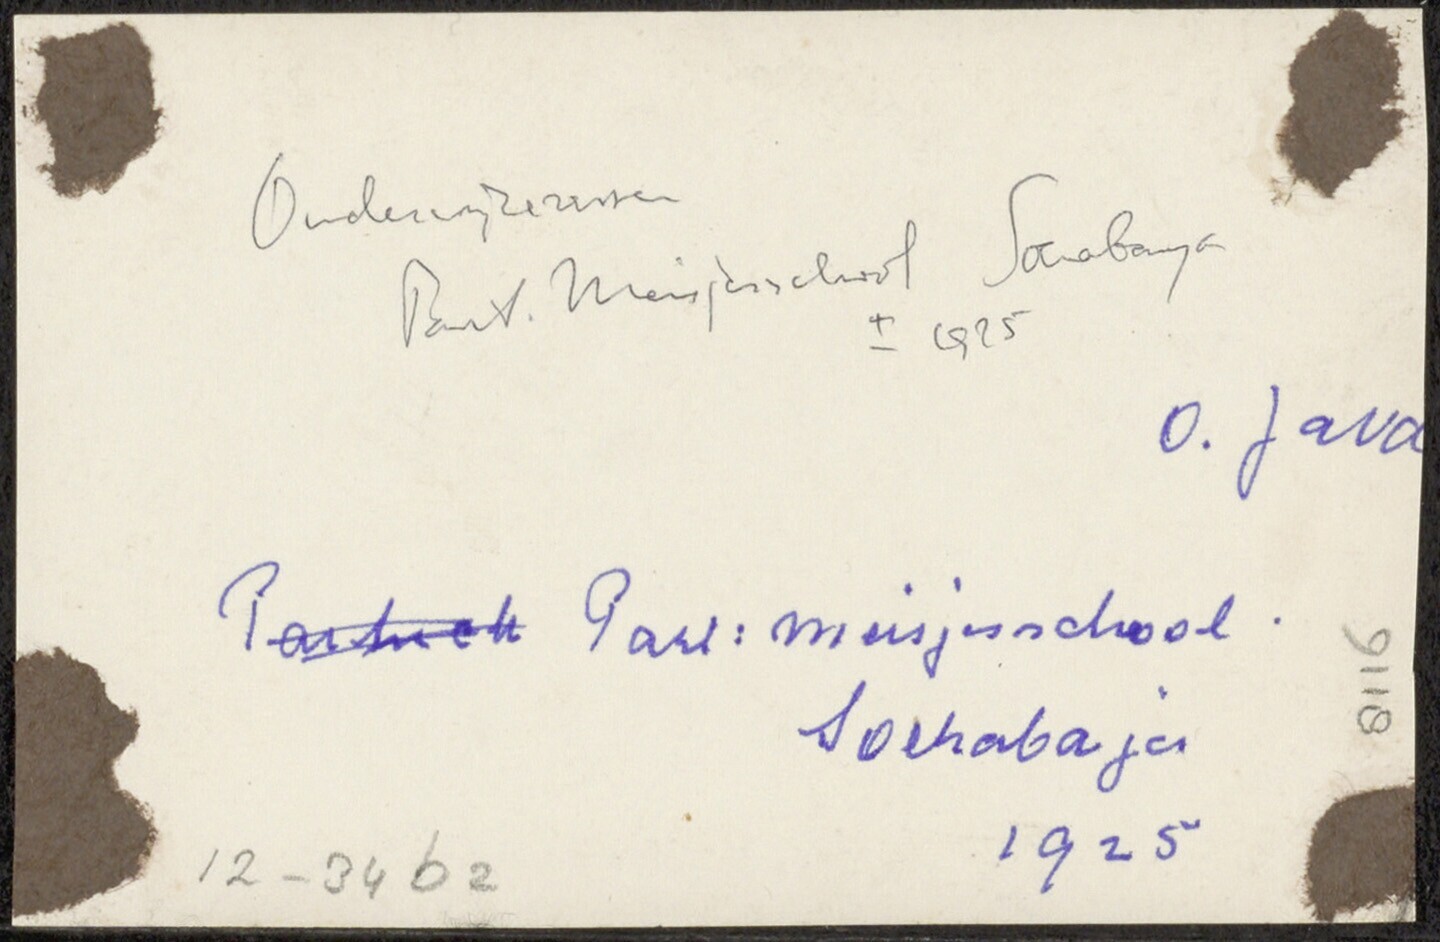 Onderwijzeressen
Part. Meisjesschool Soerabaya
± 1925
O. Java
Part: meisjesschool.
Soerabaja
1925
12-34b2
8116